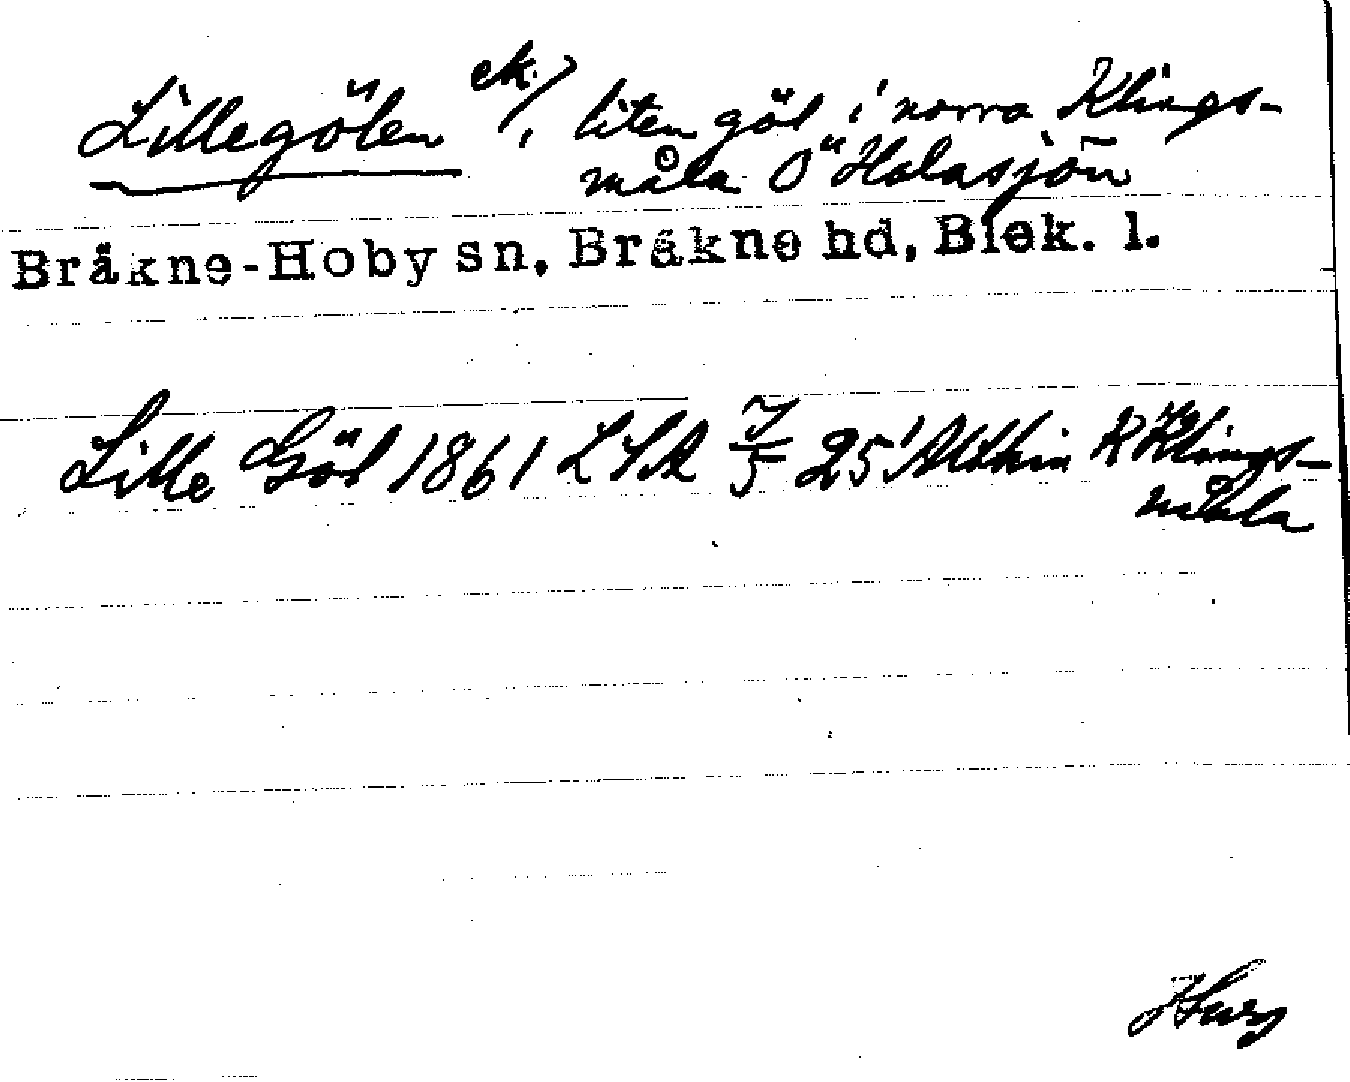 Lillegölen ek., liten göl i norra Klings-
måla Ö Halasjön
Bräkne-Hoby sn, Bräkne hd, Blek. l.
Lille Göl 1861 LSA 25 R Klings-
måla